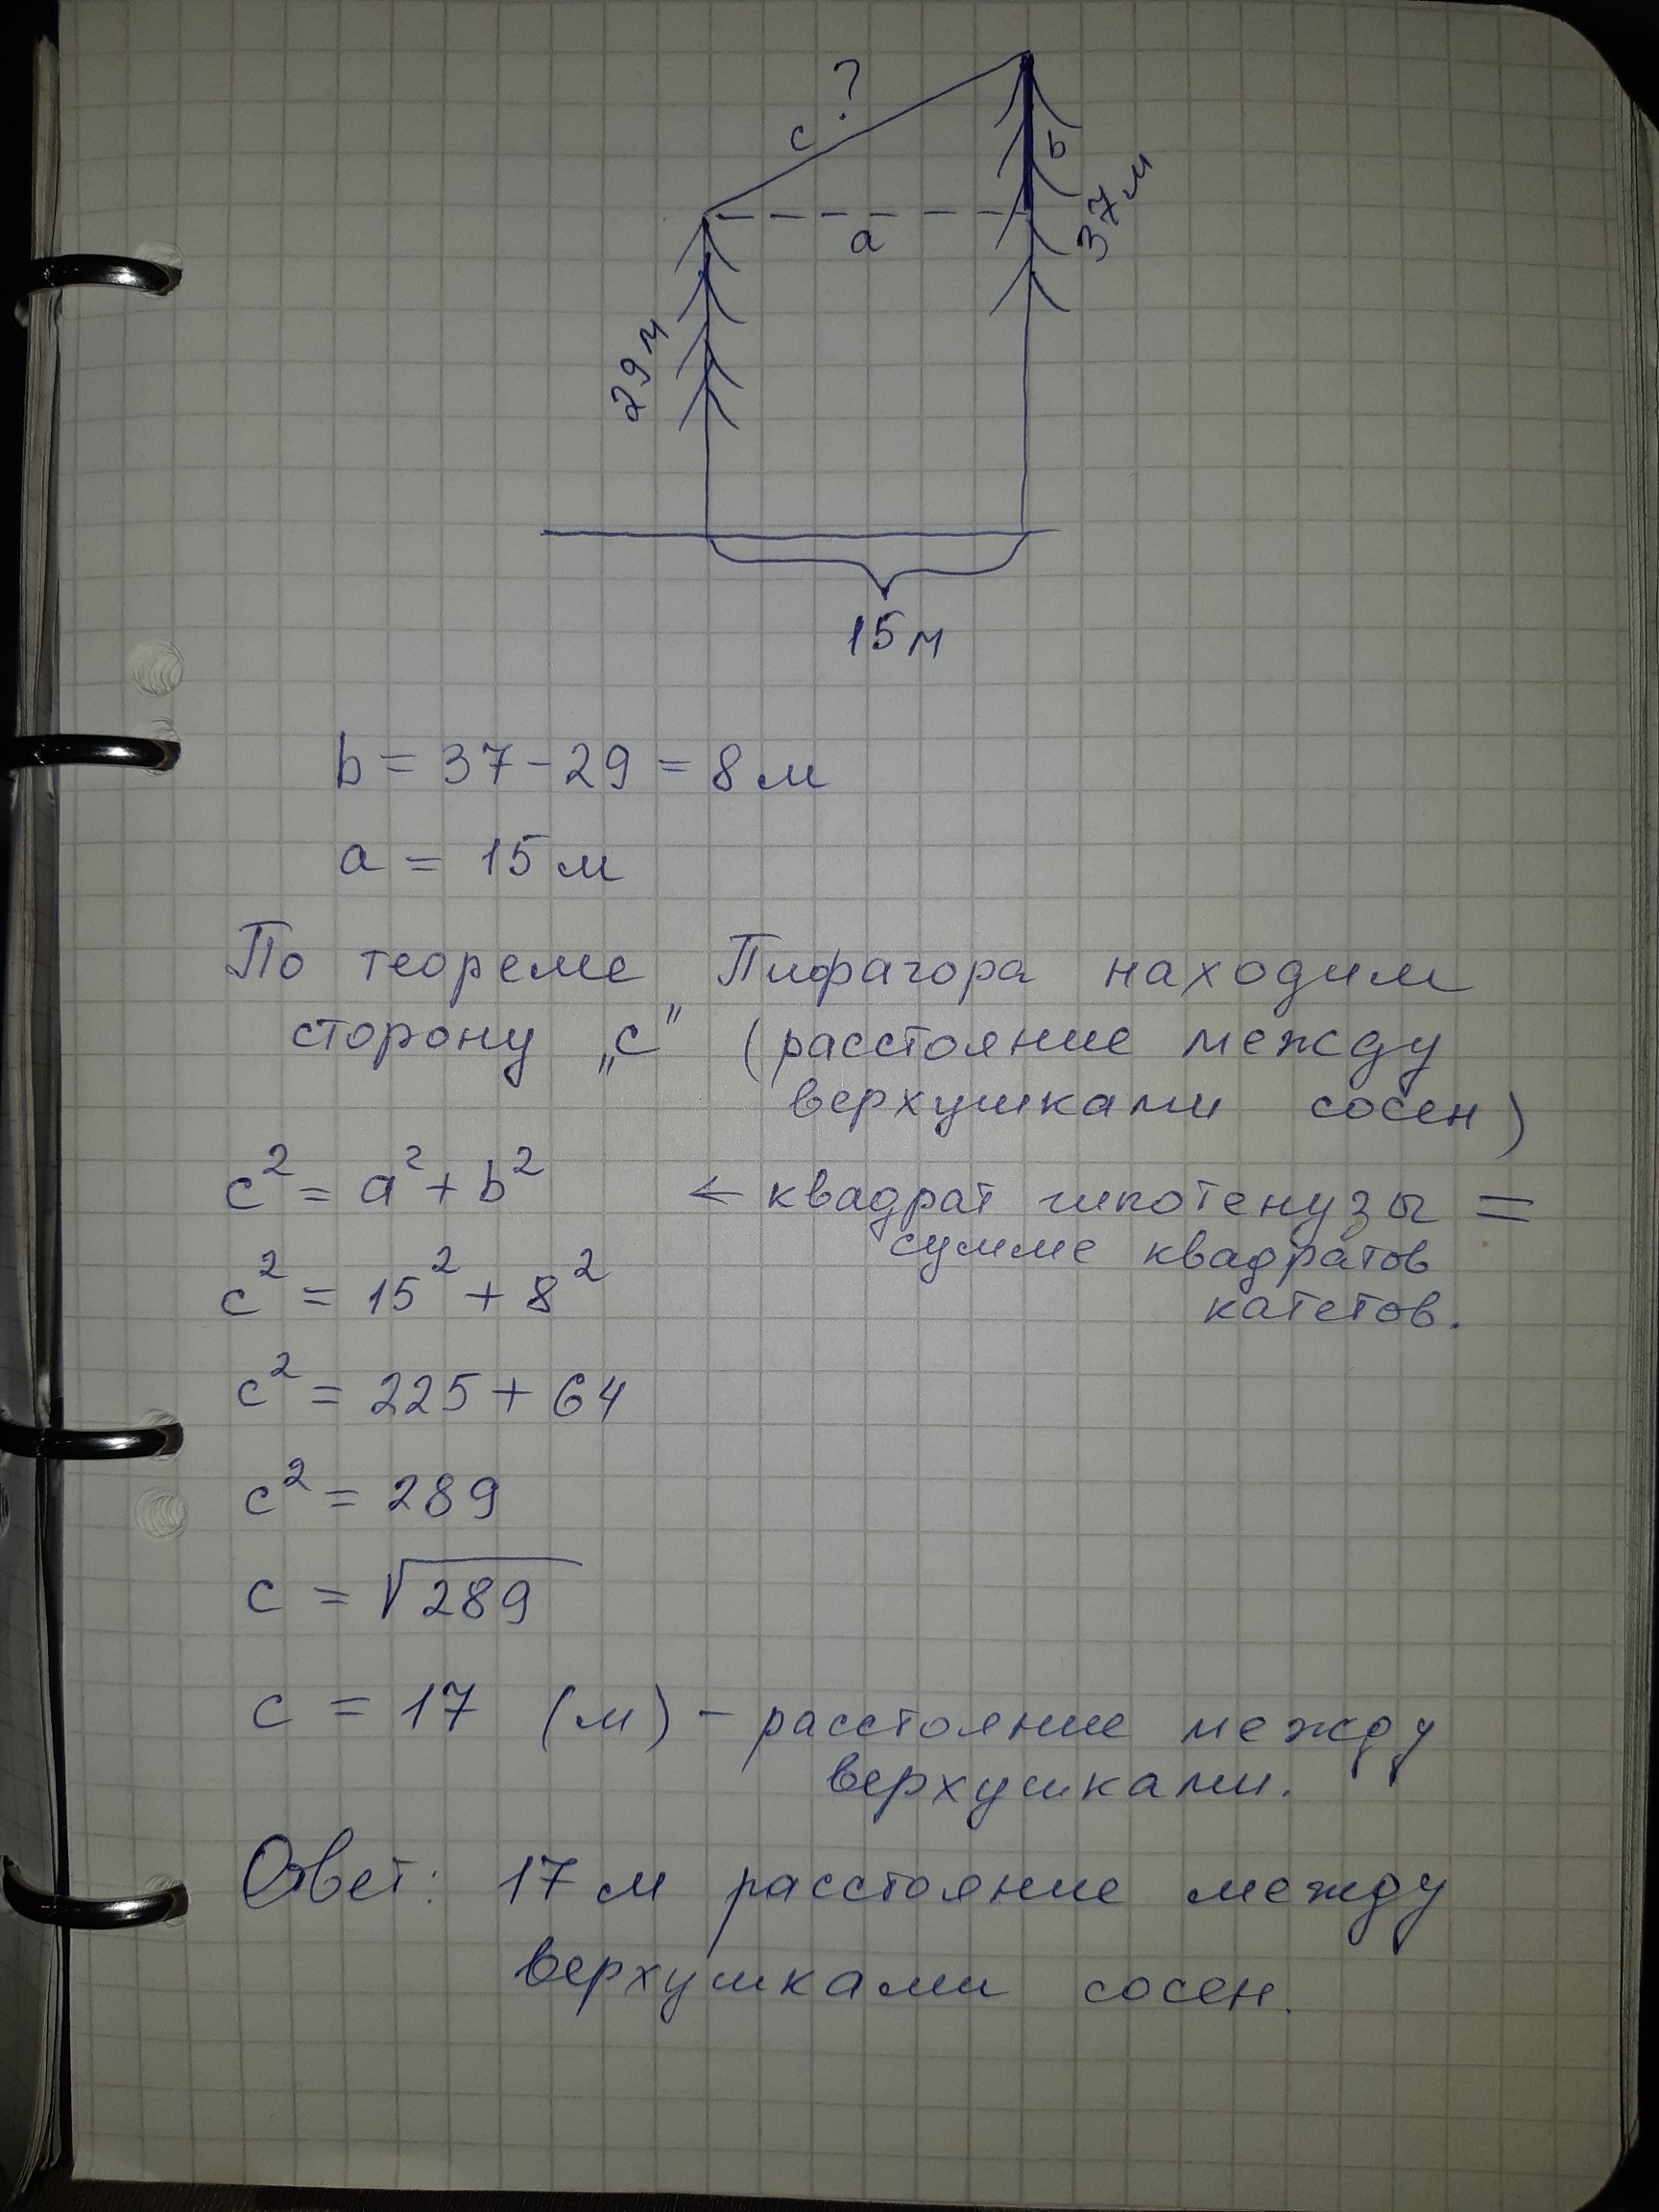 c ?
b
37 м
a
29 м
15 м
b = 37 - 29 = 8 м
a = 15 м
По теореме Пифагора находим
сторону „c" (расстояние между
верхушками сосен)
c² = a² + b² ← квадрат гипотенузы =
сумме квадратов
c² = 15² + 8²
катетов.
c² = 225 + 64
c² = 289
c = √289
c = 17 (м) - расстояние между
верхушками.
Ответ: 17 м расстояние между
верхушками сосен.